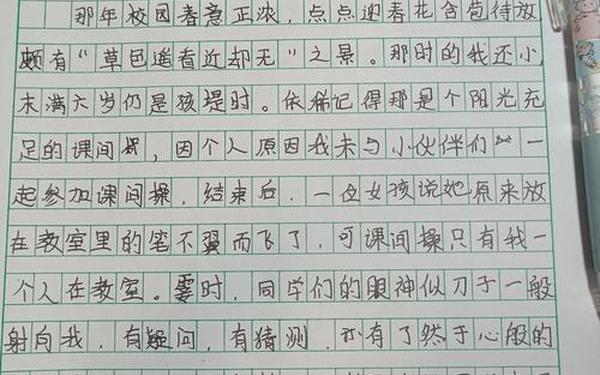 那年校园春意正浓，点点迎春花含苞待放
颇有“草色遥看近却无”之景。那时的我还小，
未满六岁仍是孩堤时。依稀记得那是个阳光充
足的课间操，因个人原因我未与小伙伴们一
起参加课间操，结束后，一位女孩说她原来放
在教室里的笔不翼而飞了，可课间操只有我一
个人在教室。霎时，同学们的眼神似刀子一般
射向我，有疑问，有猜测，亦有了然于心般的